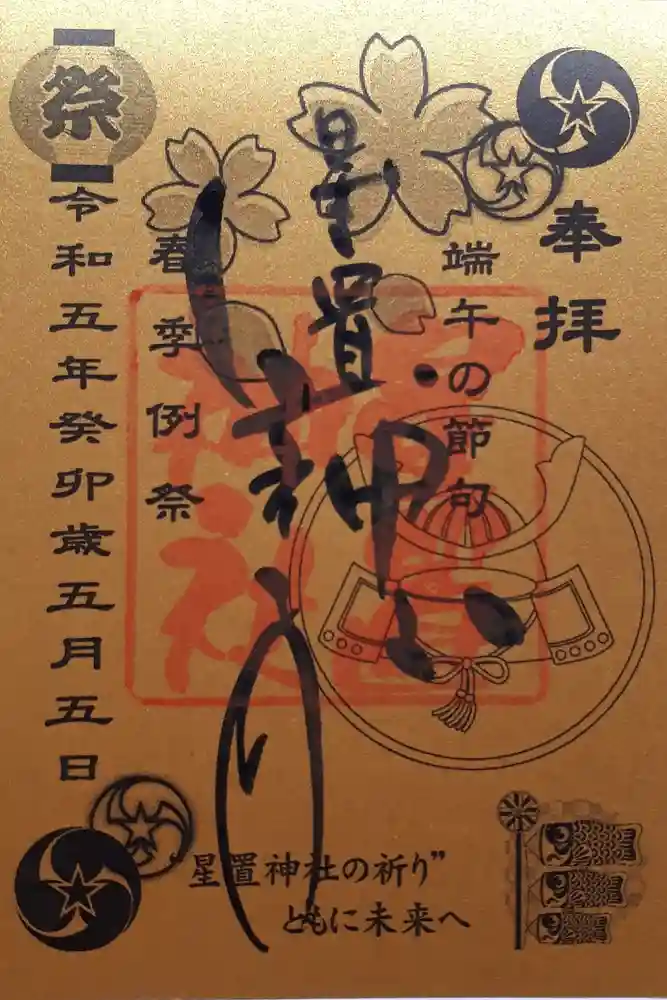 奉拝
端午の節句
星置神社
春季例祭
祭
令和五年癸卯歳五月五日
“星置神社の祈り”
ともに未来へ